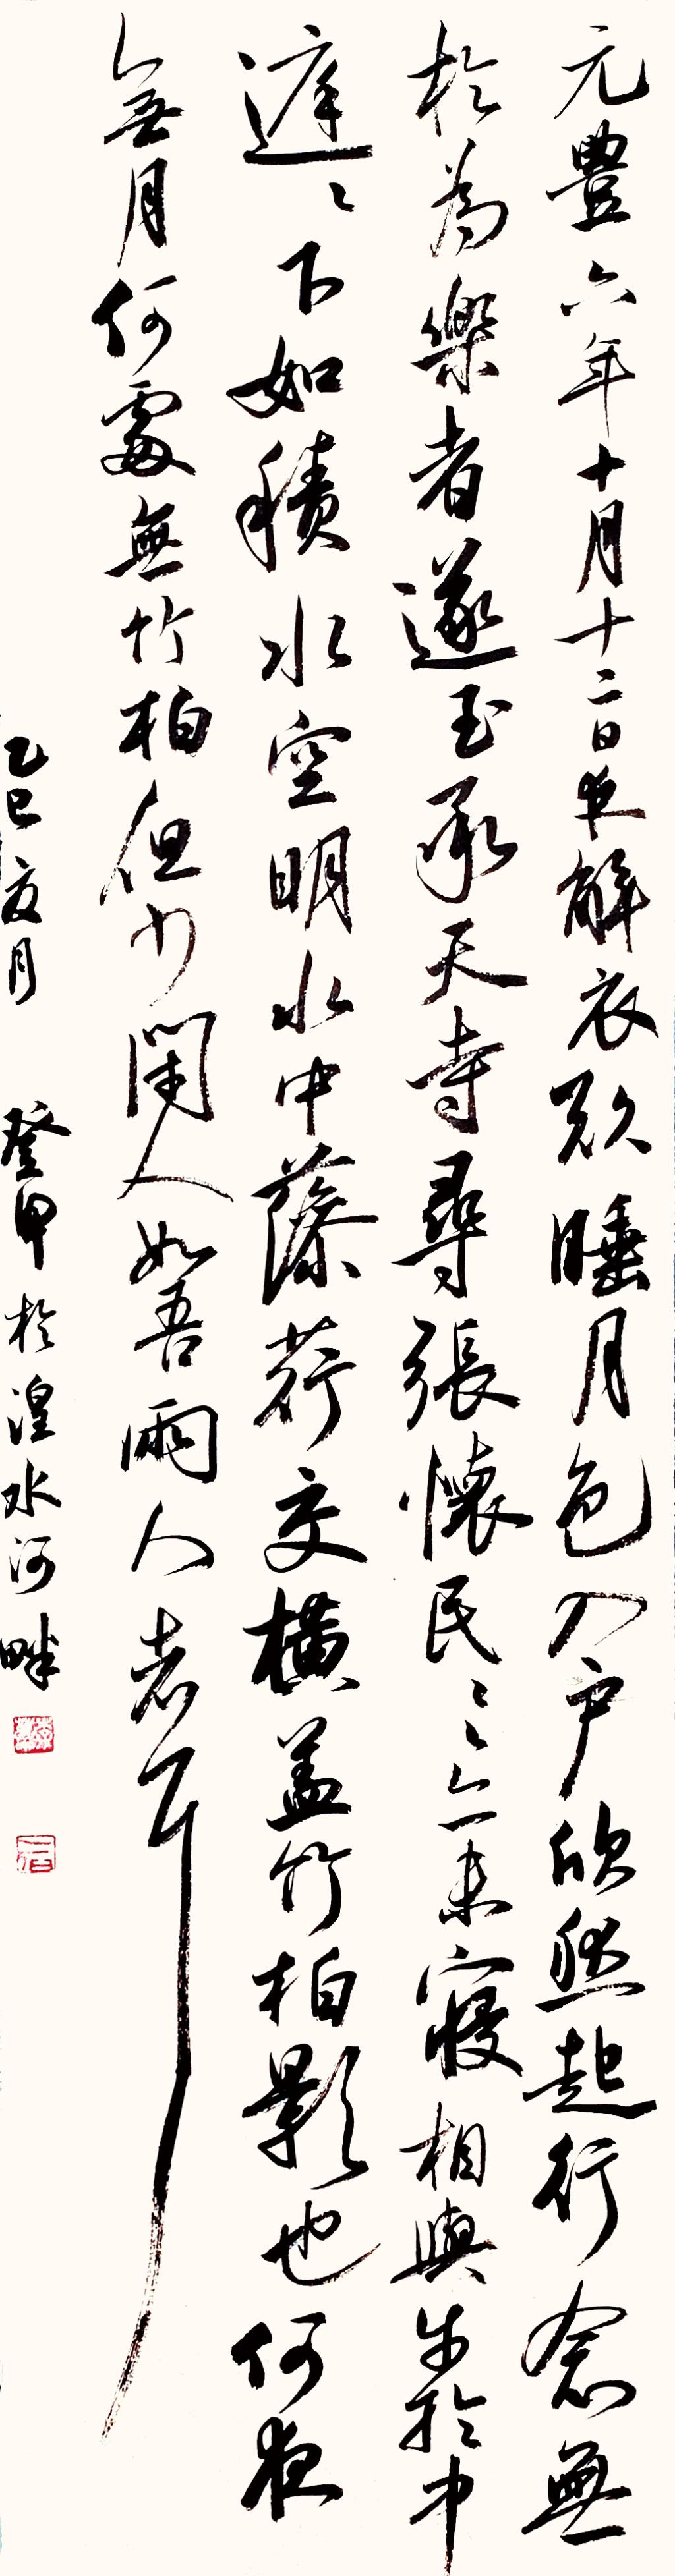 元豐六年十月十二日夜解衣欲睡月色入戶欣然起行念無
於為樂者遂至承天寺尋張懷民〻亦未寢相與步於中
庭〻下如積水空明水中藻荇交橫盖竹柏影也何夜
無月何處無竹柏但少閑人如吾兩人者耳
乙巳夏月 登甲於湟水河畔